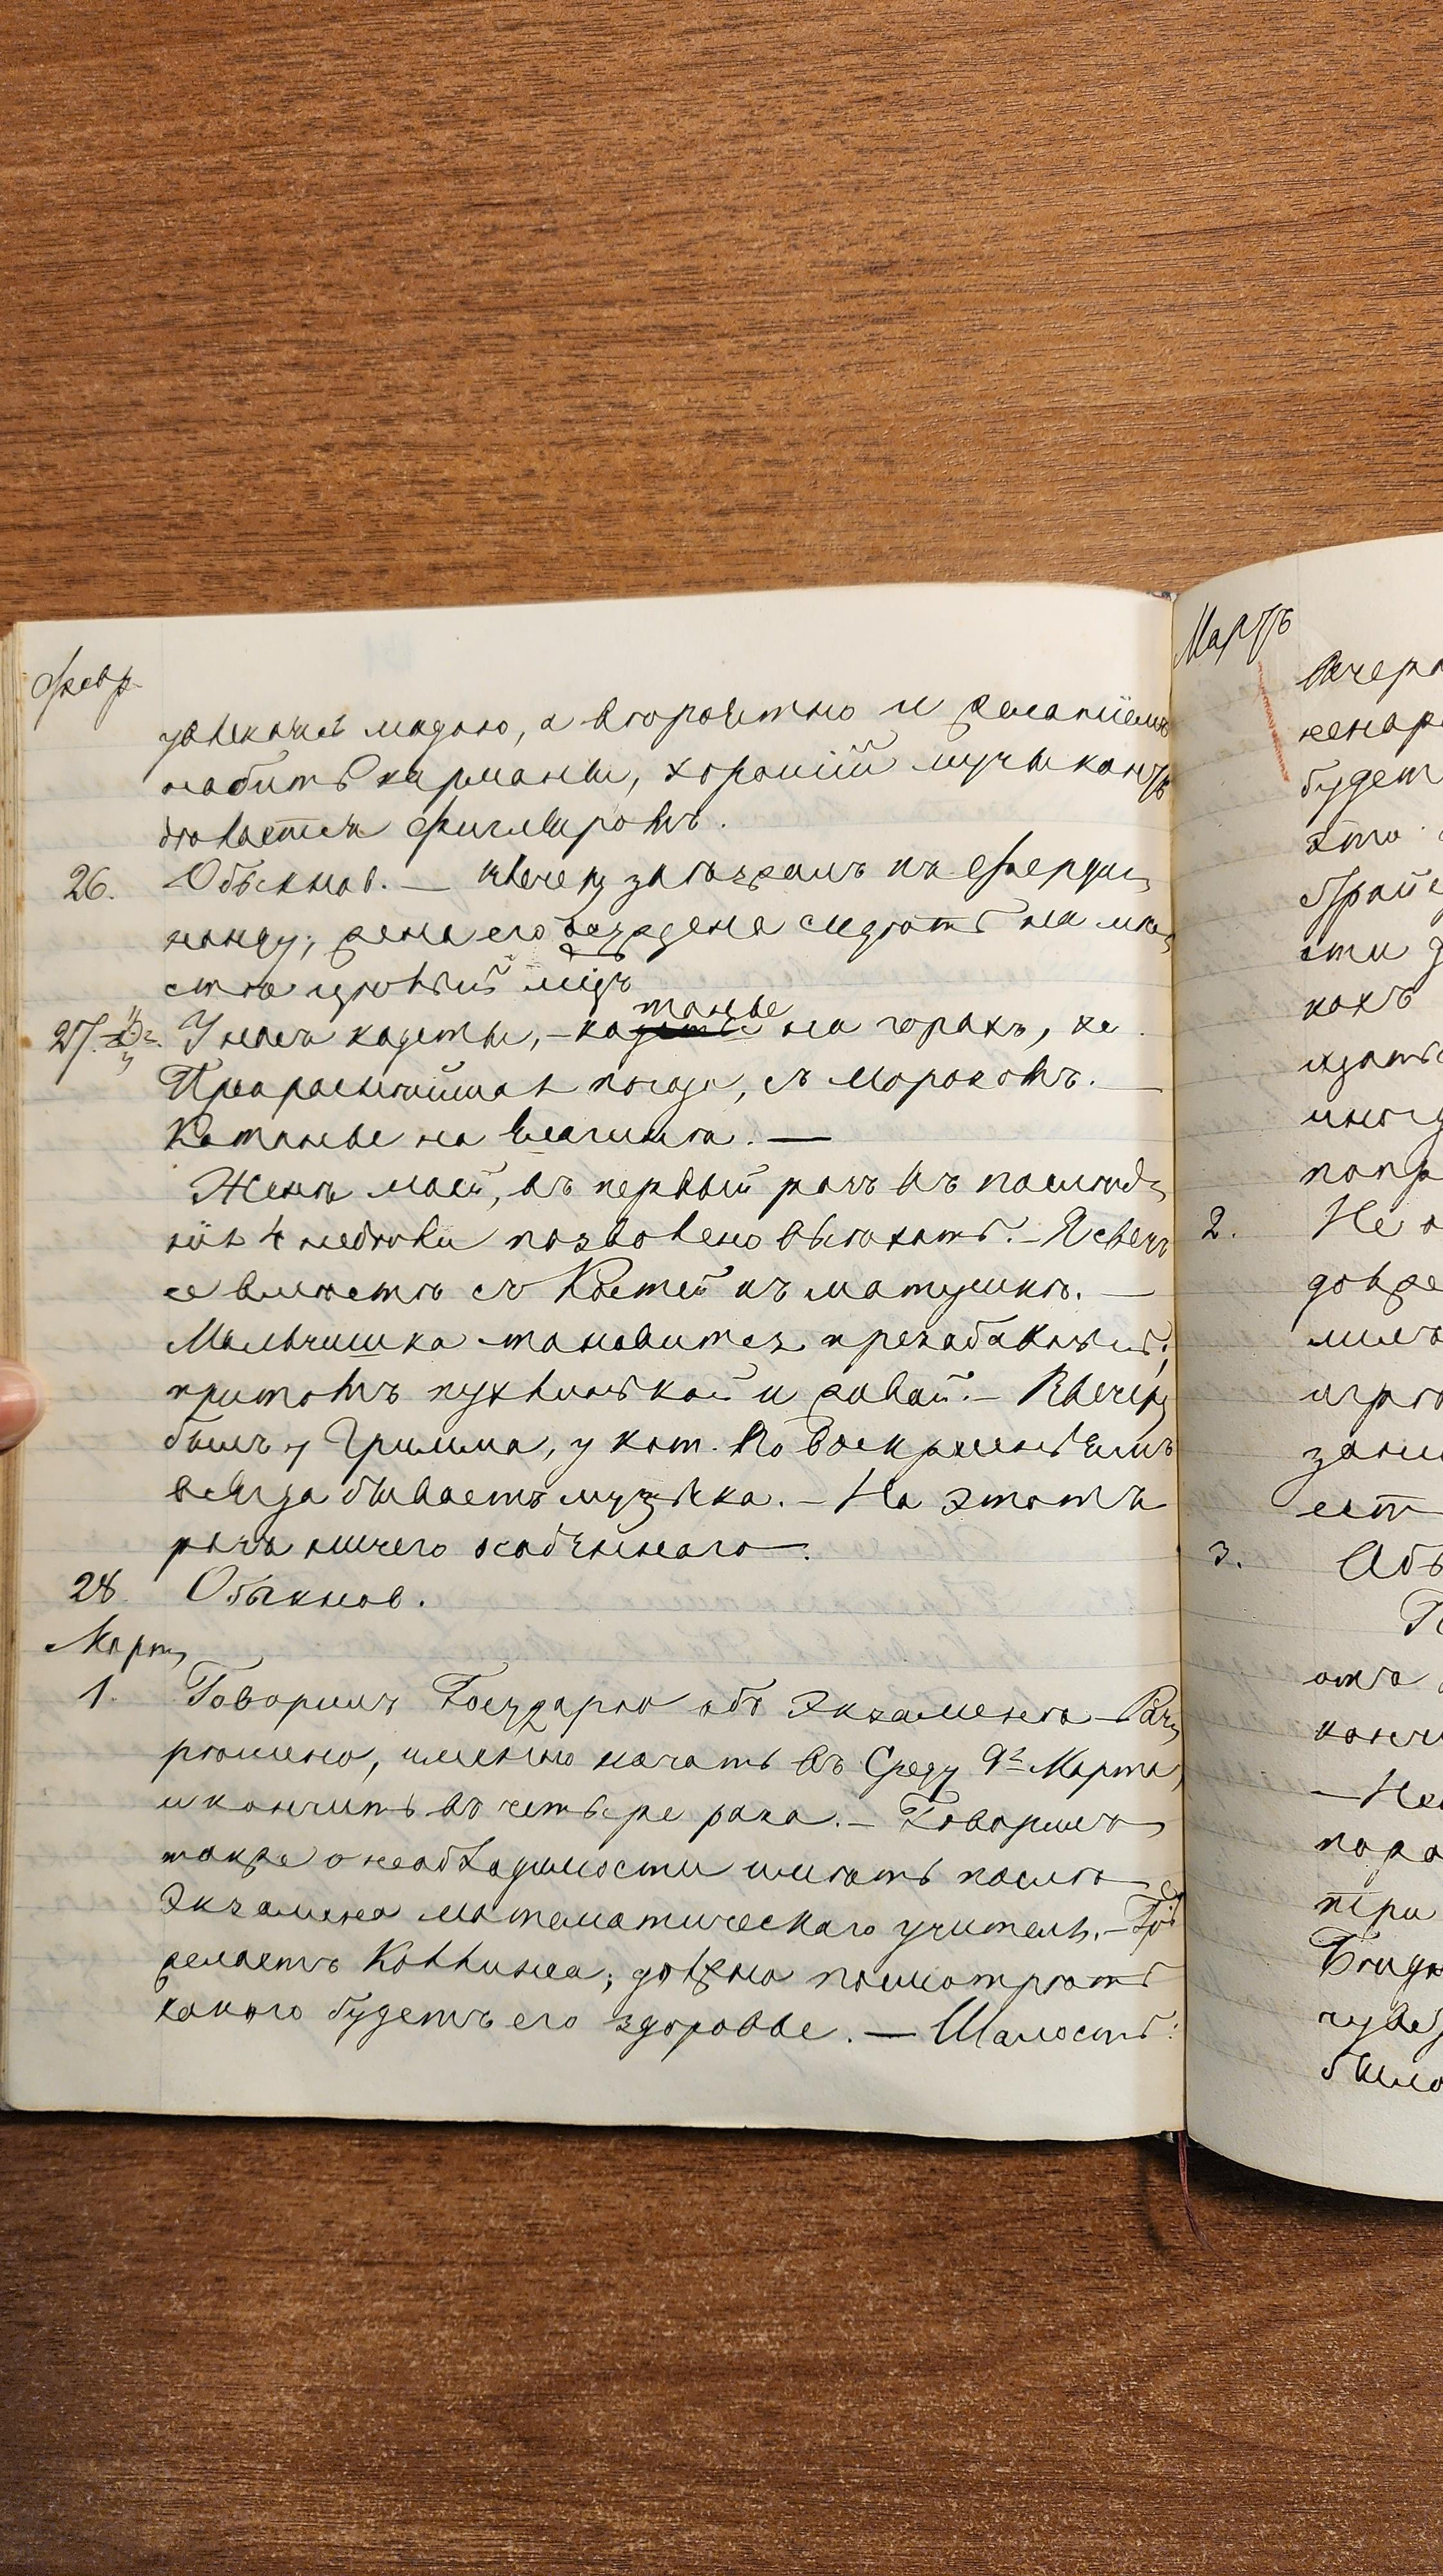 Февр.
увлекаясь модою, а вѣроятно и желаніемъ
набить карманы, хорошій музыкантъ
дѣлается фигляромъ.
26. Обыкнов. — Ввечеру заѣзжалъ къ Ферди-
нанду; жена его осуждена сидѣть на мѣ-
стѣ цѣлый
27. У насъ кадеты, — катанье на горахъ, &c.
Прекраснѣйшая погода, съ морозомъ. —
Катанье на Елагинѣ. —
Женѣ моей, въ первый разъ въ послѣд-
нія 4 недѣли позволено выѣхать. — Я свезъ
ее вмѣстѣ съ Костей къ матушкѣ. —
Мальчишка становится презабавный;
притомъ пухлинькой и живой. — Ввечеру
былъ у Гримма, у кот. по Воскресеньямъ
всегда бываетъ музыка. — На этотъ
разъ ничего особеннаго.
28 Обыкнов.
Мартъ
1. Говорилъ Государю объ Экзаменѣ — Раз-
рѣшено, именно начать въ Среду 9го Марта,
и кончить въ четыре раза. — Говорилъ
также о необходимости имѣть послѣ
Экзамена математическаго учителя. —
желаетъ Коллинса; должно посмотрѣть
каково будетъ его здоровье. — Шалость:
Мартъ
Вечеръ
будетъ
это
сти
какъ
иног
попр
2. Не
долже
милъ
игра
зани
ест
3. Объ
отъ
конч
— Не
при
было